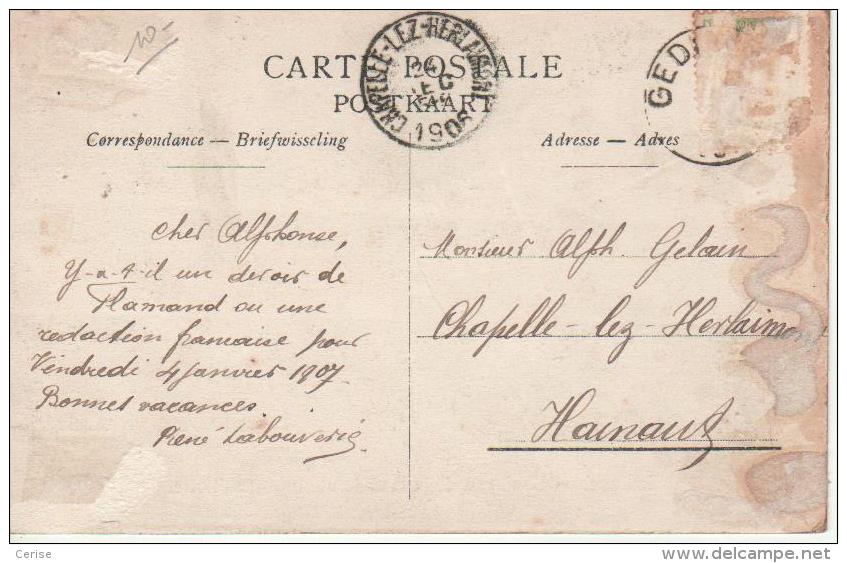 10-
CHAPELLE-LEZ-HERLAIMONT
24
DEC
1906
GED
CARTE POSTALE
POSTKAART
Correspondance — Briefwisseling
Adresse — Adres
cher Alphonse,
Y-a-t-il un devoir de
Flamand ou une
redaction francaise pour
Vendredi 4 Janvier 1907
Bonnes vacances
René Labouverie
Monsieur Alph. Gelain
Chapelle-lez-Herlaimont
Hainaut
Cerise
www.delcampe.net